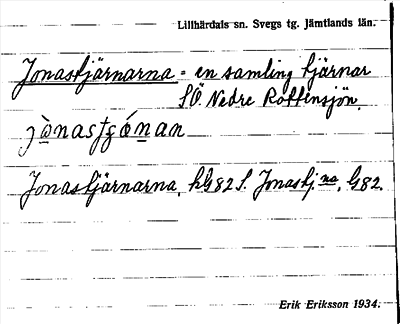 Lillhärdals sn. Svegs tg. Jämtlands län.
Jonastjärnarna = en samling tjärnar
SÖ. Nedre Rottensjön.
Jonastjärnarna, hG82S. Jonastj:na, G82.
Erik Eriksson 1934.